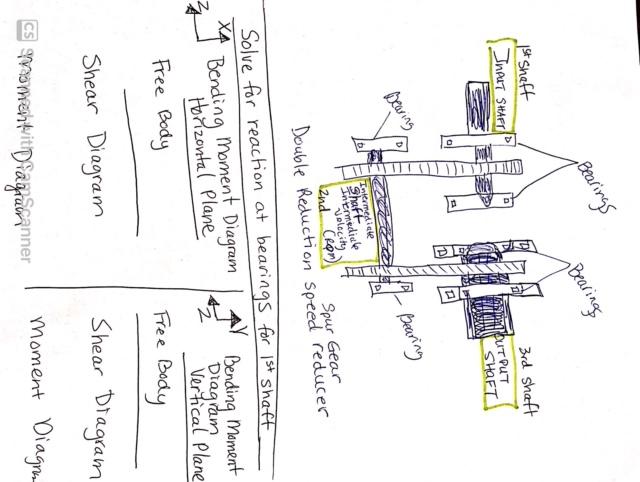 1st shaft
INPUT SHAFT
Bearings
Bearings
3rd shaft
OUTPUT
SHAFT
Bearing
Intermediate
Shaft
Intermediate
Volocity
(RPM)
2nd
Bearing
Double Reduction speed reducer
Spur Gear
Solve for reaction at bearings for 1st shaft
X
Z
Bending Moment Diagram
Horizontal Plane
Free Body
Shear Diagram
Moment Diagram
Y
Z
Bending Moment
Diagram
Vertical Plane
Free Body
Shear Diagram
Moment Diagram
CS Scanned with CamScanner